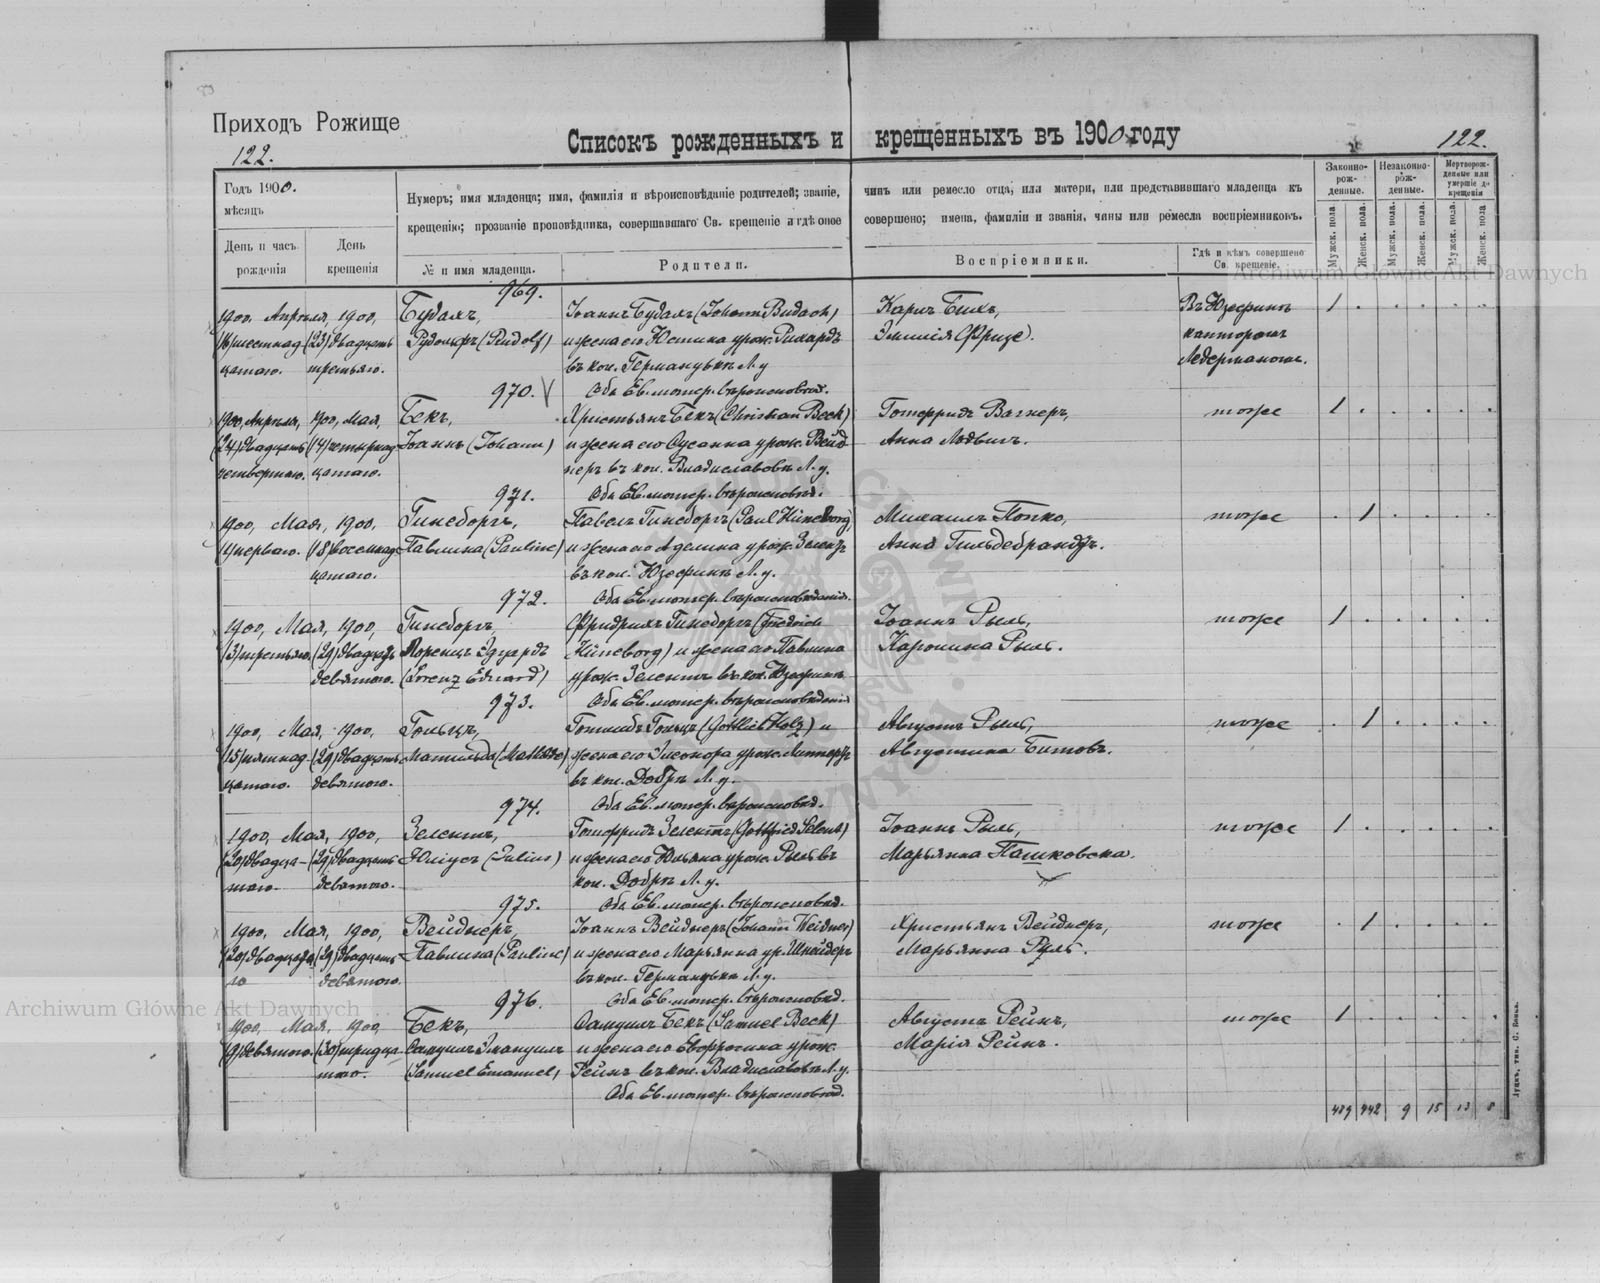 Приходъ Рожище
122.
Списокъ рожденныхъ и крещенныхъ въ 1900 году
122.
Годъ 1900.
мѣсяцъ
День и часъ рожденія
День крещенія
Нумеръ; имя младенца; имя, фамилія и вѣроисповѣданіе родителей; званіе, чинъ или ремесло отца, или матери, или представившаго младенца къ
крещенію; прозваніе проповѣдника, совершавшаго Св. крещеніе и гдѣ оное совершено; имена, фамиліи и званія, чины или ремесла воспріемниковъ.
№ и имя младенца.
Родители.
Воспріемники.
Гдѣ и кѣмъ совершено Св. крещеніе.
Законно-рож-денные.
Незаконно-рож-денные.
Мертворож-денные или умершіе до крещенія
Мужск. пола.
Женск. пола.
Мужск. пола.
Женск. пола.
Мужск. пола.
Женск. пола.
Archiwum Główne Akt Dawnych
969.
1900, Апрѣля, 1900, Будахъ, Іоаннъ Будахъ (Johann Budach) Карлъ Бихъ, Въ Юзефинѣ 1
(16) шестнад- (23) двадцать Рудольфъ (Rudolf) и жена его Юстина урож. Рихардъ Эмилія Фрице). канторомъ
цатаго. третьяго. въ кол. Германувкѣ Л. у. Ледерманомъ.
970. Оба Ев. лютер. вѣроисповѣд.
1900, Апрѣля, 1900, Мая, Бекъ, Христьянъ Бекъ (Christian Beck) Готфридъ Вагнеръ, тоже 1
(24) двадцать (14) четырнад- Іоаннъ (Johann) и жена его Сусанна урож. Вейд- Анна Людвигъ.
четвертаго. цатаго. неръ въ кол. Владиславовкѣ Л. у.
971. Оба Ев. лютер. вѣроисповѣд.
1900, Мая, 1900, Гинеборгъ, Павелъ Гинеборгъ (Paul Hüneborg) Михаилъ Попко, тоже 1
(1) перваго. (18) восемнад- Павлина (Pauline) и жена его Аделина урож. Зелентъ Анна Гильдебрандтъ.
цатаго. въ кол. Юзефинѣ Л. у.
972. Оба Ев. лютер. вѣроисповѣданія.
1900, Мая, 1900, Гинеборгъ, Фридрихъ Гинеборгъ (Friedrich Іоаннъ Рыль, тоже 1
(3) третьяго. (29) двадцать Лоренцъ Эдуардъ Hüneborg) и жена его Павлина Каролина Рыль.
девятаго. (Lorenz Eduard) урож. Зелентъ въ кол. Юзефинѣ
973. Оба Ев. лютер. вѣроисповѣданія
1900, Мая, 1900, Гольцъ, Готлибъ Гольцъ (Gottlieb Holz) и Августъ Рыль, тоже 1
(15) пятнад- (29) двадцать Матильда (Mathilde) жена его Элеонора урож. Августина Битовъ.
цатаго. девятаго. въ кол. Добрѣ Л. у.
974. Оба Ев. лютер. вѣроисповѣд.
1900, Мая, 1900, Зелентъ, Готфридъ Зелентъ (Gottfried Selent) Іоаннъ Рыль, тоже 1
(20) двадца- (29) двадцать Юліусъ (Julius) и жена его Юльяна урож. Рыль въ Марьянна Пашковска.
таго. девятаго. кол. Добрѣ Л. у.
975. Оба Ев. лютер. вѣроисповѣд.
1900, Мая, 1900, Вейднеръ, Іоаннъ Вейднеръ (Johann Weidner) Христьянъ Вейднеръ, тоже 1
(20) двадцата- (29) двадцать Павлина (Pauline) и жена его Марьянна ур. Шнейдеръ Марьянна Руль.
го девятаго. въ кол. Германувкѣ Л. у.
976. Оба Ев. лютер. вѣроисповѣд.
Archiwum Główne Akt Dawnych
1900, Мая, 1900, Бекъ, Самуилъ Бекъ (Samuel Beck) Августъ Рейнъ, тоже 1
(9) девятаго. (30) тридца- Самуилъ Эмануилъ и жена его Евфрозина урож. Марія Рейнъ.
таго. (Samuel Emanuel) Рейнъ въ кол. Владиславовкѣ Л. у.
Оба Ев. лютер. вѣроисповѣд.
9 15 13 8